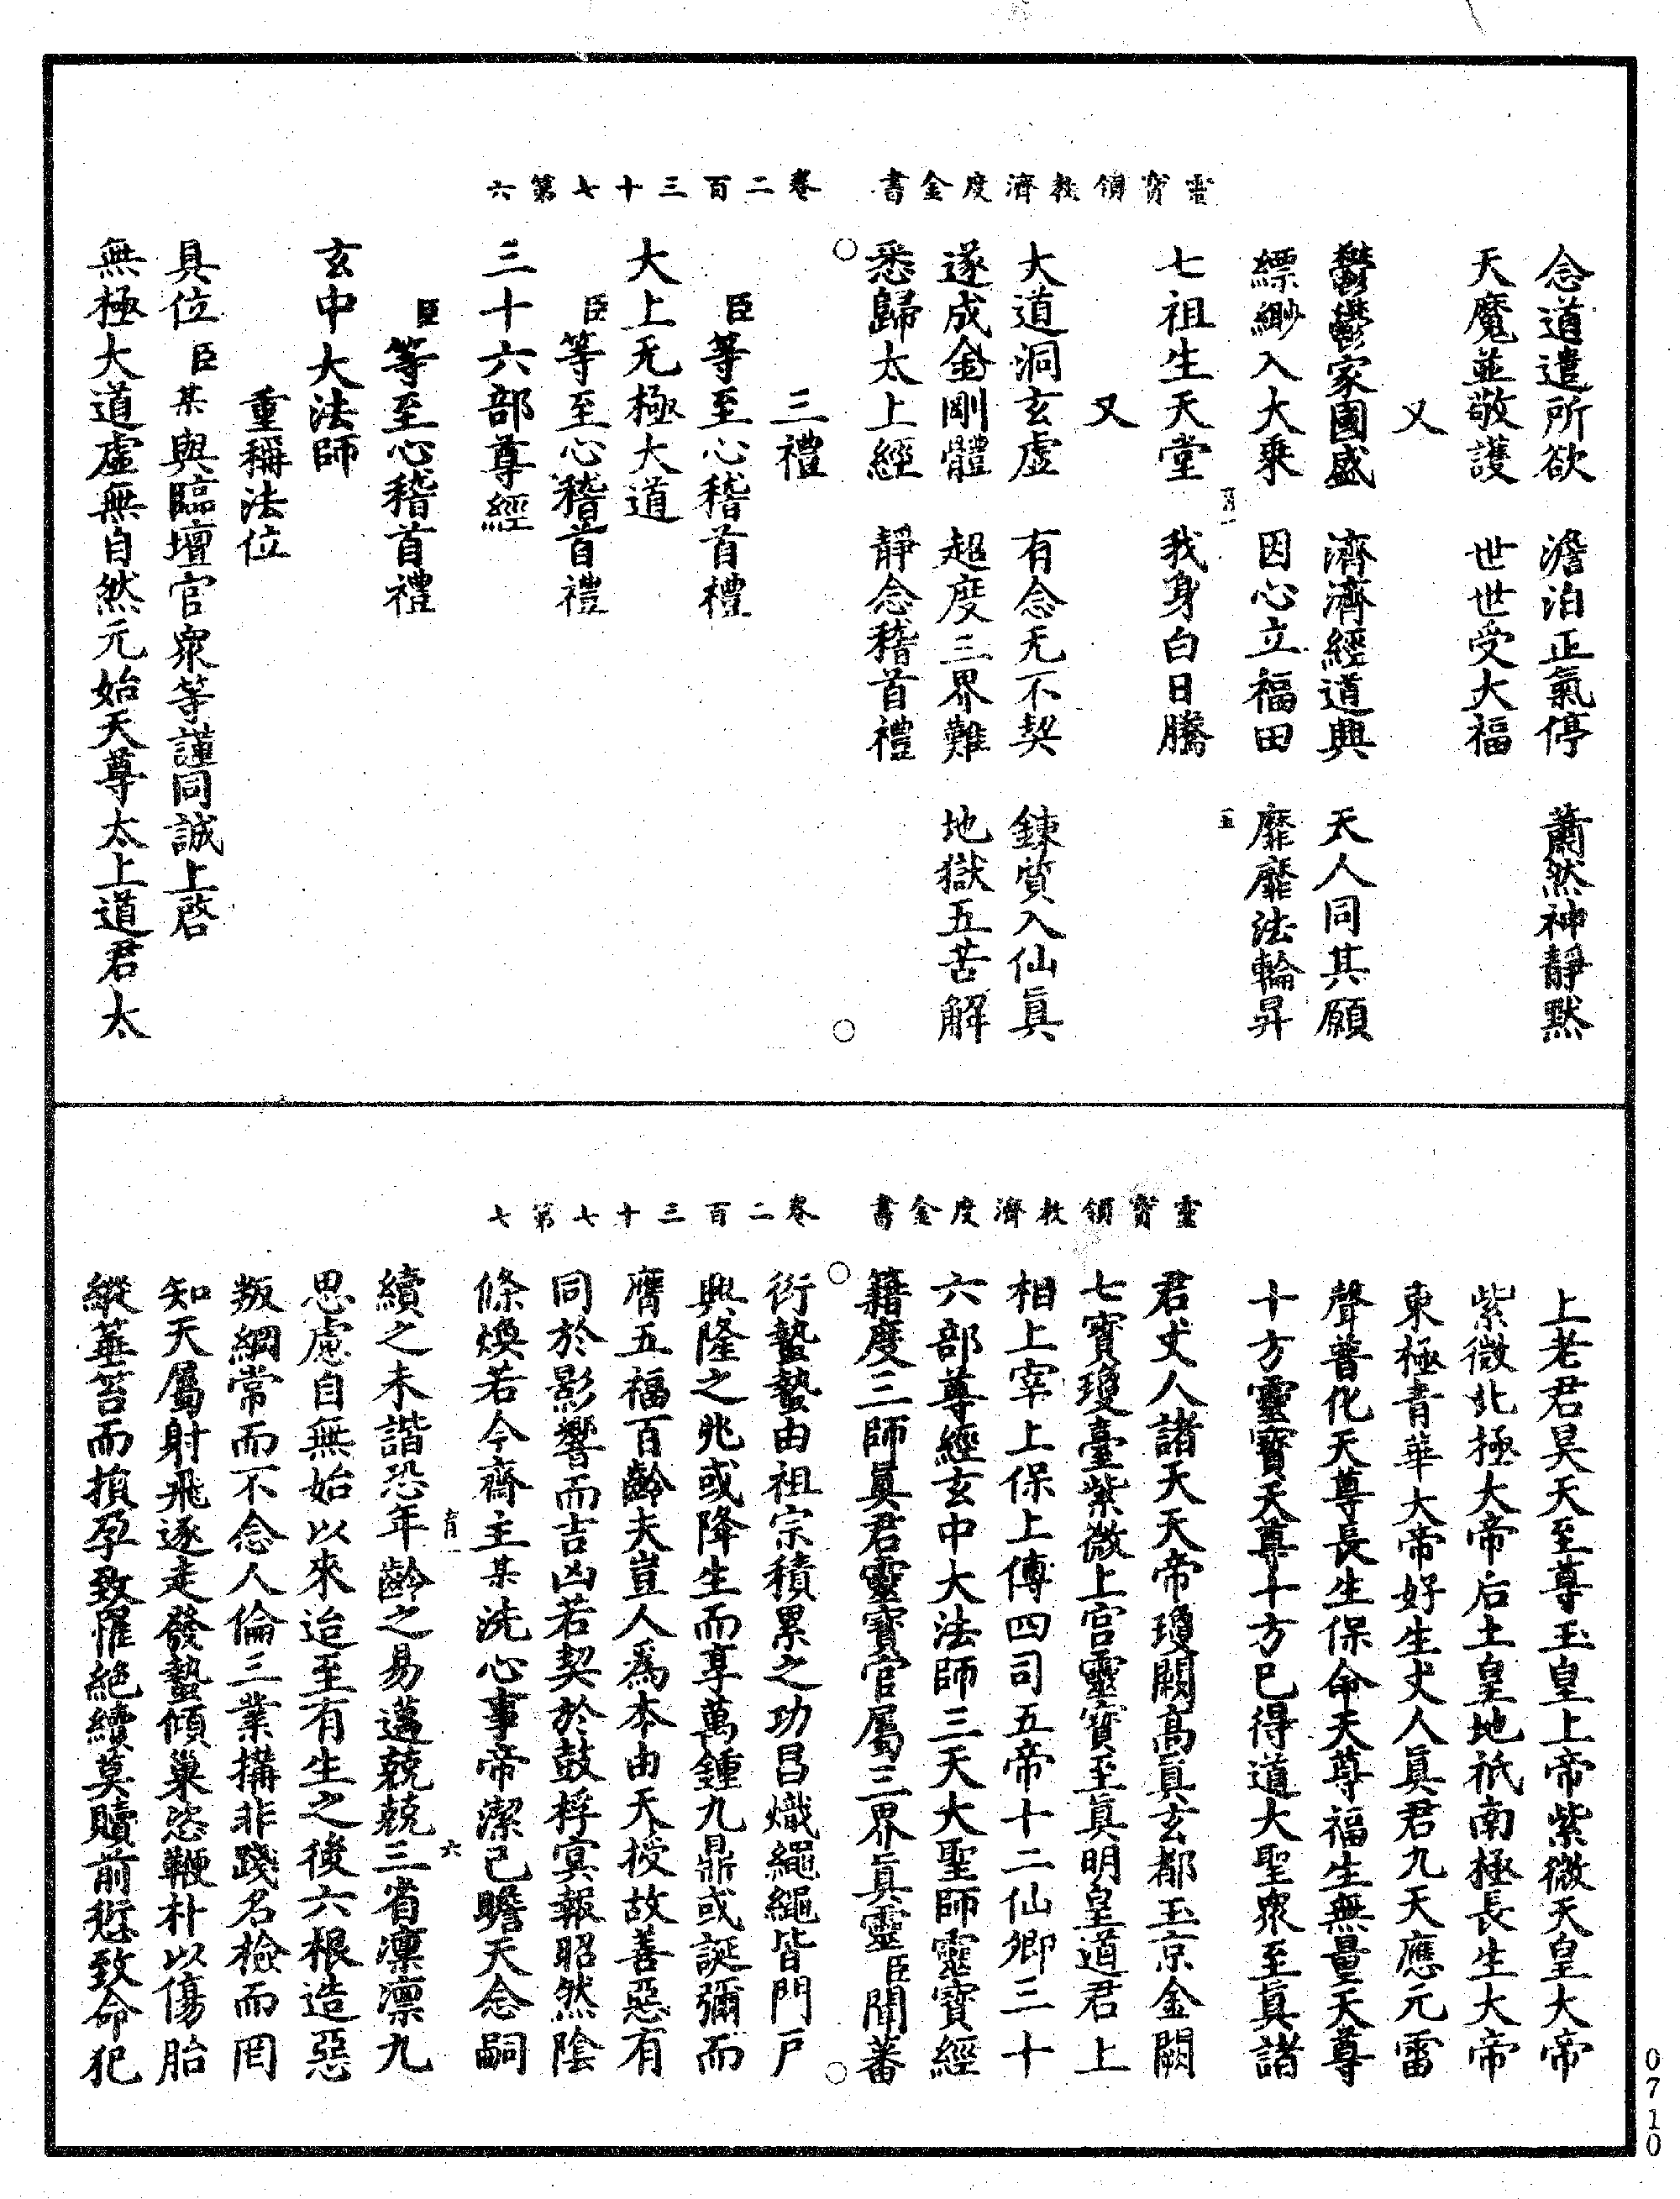 靈寶領教濟度金書　卷二百三十七第六
念道遣所欲　澹泊正氣停　蕭然神靜默
天魔並敬護　世世受大福
又
鬱鬱家國盛　濟濟經道興　天人同其願
縹緲入大乘　因心立福田　靡靡法輪昇
七祖生天堂　我身白日騰
又
大道洞玄虛　有念无不契　鍊質入仙真
遂成金剛體　超度三界難　地獄五苦解
悉歸太上經　靜念稽首禮
三禮
臣等至心稽首禮
大上无極大道
臣等至心稽首禮
三十六部尊經
臣等至心稽首禮
玄中大法師
重稱法位
具位臣某與臨壇官衆等謹同誠上啓
無極大道虛無自然元始天尊太上道君太
靈寶領教濟度金書　卷二百三十七第七
上老君昊天至尊玉皇上帝紫微天皇大帝
紫微北極大帝后土皇地祇南極長生大帝
東極青華大帝好生丈人眞君九天應元雷
聲普化天尊長生保命天尊福生無量天尊
十方靈寶天尊十方已得道大聖衆至眞諸
君丈人諸天天帝瓊闕高眞玄都玉京金闕
七寶瓊臺紫微上宮靈寶至眞明皇道君上
相上宰上保上傅四司五帝十二仙卿三十
六部尊經玄中大法師三天大聖師靈寶經
籍度三師眞君靈寶官屬三界眞靈臣聞蕃
衍蟄蟄由祖宗積累之功昌熾繩繩皆門戶
興隆之兆或降生而享萬鍾九鼎或誕彌而
膺五福百齡夫豈人爲本由天授故善惡有
同於影響而吉凶若契於鼓桴冥報昭然陰
條煥若今齋主某洗心事帝潔己瞻天念嗣
續之未諧恐年齡之易邁兢兢三省凜凜九
思慮自無始以來迨至有生之後六根造惡
叛綱常而不念人倫三業搆非踐名檢而罔
知天屬射飛逐走發蟄傾巢恣鞭朴以傷胎
縱箠笞而損孕致罹絕續莫贖前愆致命犯
0710